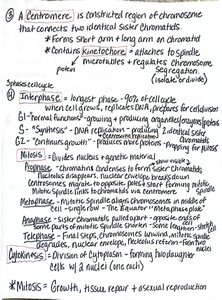 ③ A Centromere is constricted region of chromosome
that connects two identical sister chromatids
* Forms short arm + long arm on chromatid
* Contains Kinetochore = attaches to spindle
protein microtubules + regulates chromosome
segregation
(isolate or divide)
Interphase = longest phase - 90% of cell cycle
when cell grows, replicates DNA, prepares for cell division
G1 - "normal functions" - growing + producing organelles/enzymes/proteins
S - "Synthesis" - DNA replication - producing 2 identical sister
chromatids
G2 - "continues growth" - produces more proteins - prepping for
Mitosis - Divides nucleus + genetic material
Prophase - chromatin condenses to form sister chromatids
Nucleolus disappears, nuclear envelope breaks down
centrosomes migrate to opposite poles + start forming
Mitotic Spindle links to chromatids via centromere
Metaphase - Mitotic Spindle aligns chromosomes in middle of
cell - single row - The Equator "Metaphase plate"
Anaphase - Sister chromatids pulled apart - opposite ends of
some parts of mitotic spindle shorten - some lengthen
Telophase - Final steps, chromosomes unwind, mitotic spindle
degrades, nuclear envelope, nucleolus reform - form two
nuclei
Cytokinesis = Division of Cytoplasm - forming two daughter
cells w/ 2 nuclei (one each)
* Mitosis = Growth, tissue repair + asexual reproduction